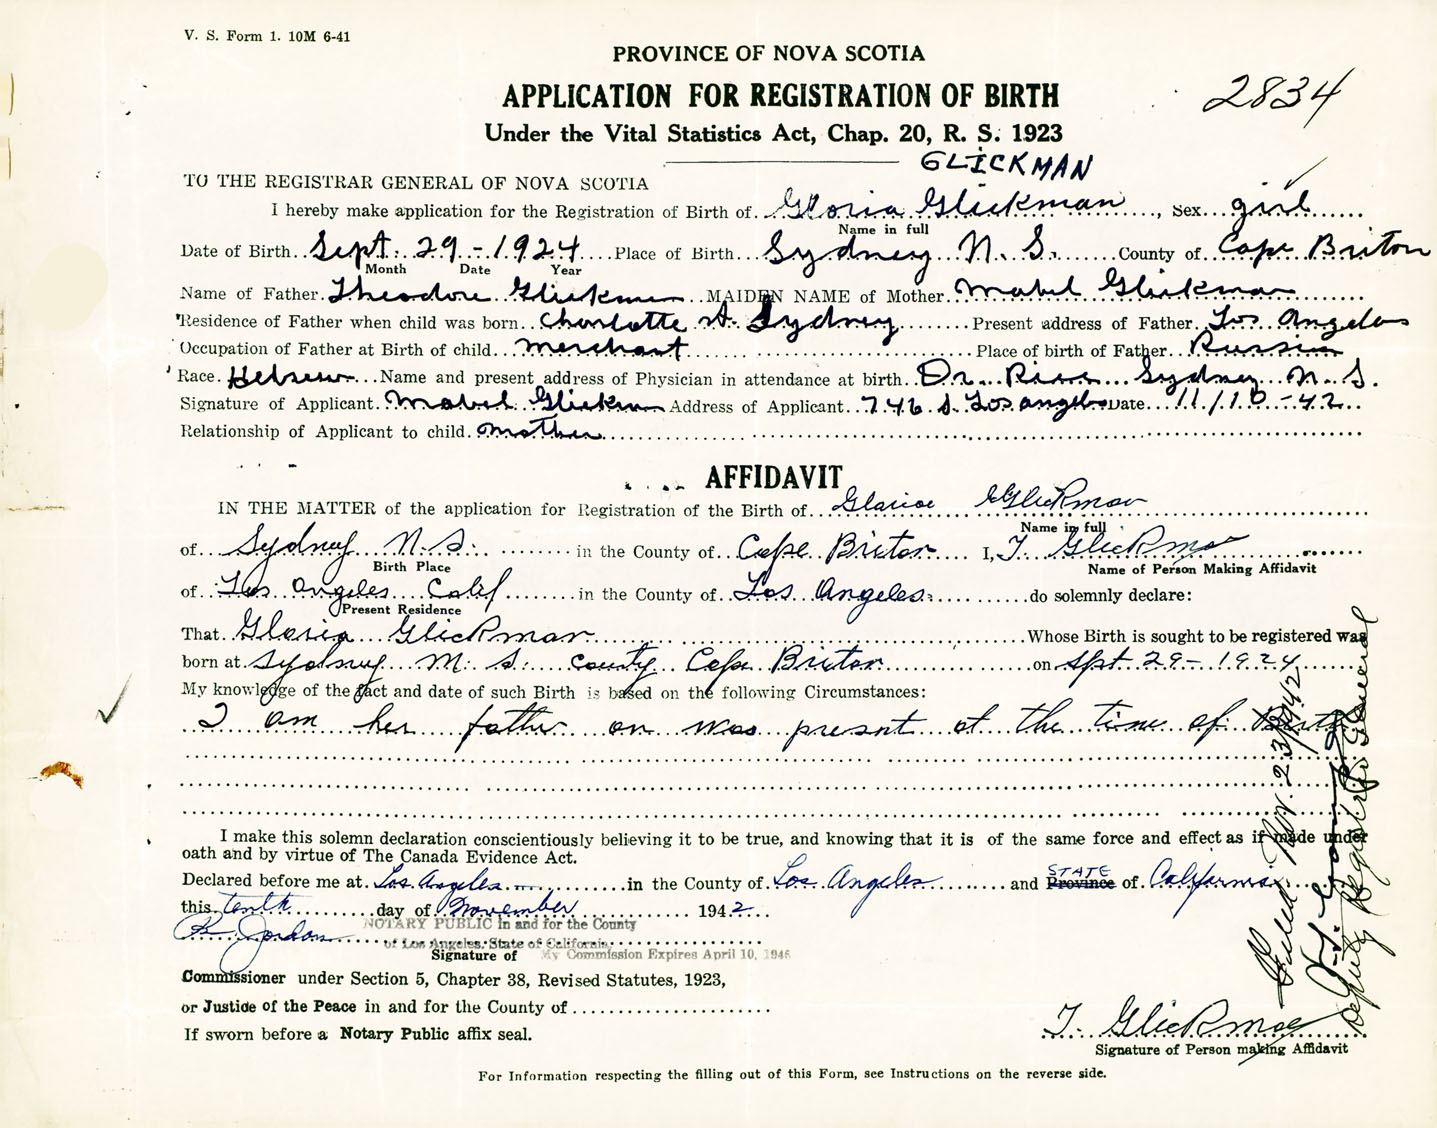 V. S. Form 1. 10M 6-41
PROVINCE OF NOVA SCOTIA
APPLICATION FOR REGISTRATION OF BIRTH
2834
Under the Vital Statistics Act, Chap. 20, R. S. 1923
GLICKMAN
TO THE REGISTRAR GENERAL OF NOVA SCOTIA
I hereby make application for the Registration of Birth of Gloria Glickman, Sex girl
Name in full
Date of Birth Sept. 29 - 1924 Place of Birth Sydney N. S. County of Cape Briton
Month Date Year
Name of Father Theodore Glickman MAIDEN NAME of Mother Mabel Glickman
Residence of Father when child was born Charlotte St. Sydney Present address of Father Los Angeles
Occupation of Father at Birth of child merchant Place of birth of Father Russia
Race. Hebrew Name and present address of Physician in attendance at birth Dr. Sydney N. S.
Signature of Applicant Mabel Glickman Address of Applicant 746 S. Los angeles Date 11/10-42
Relationship of Applicant to child mother
AFFIDAVIT
IN THE MATTER of the application for Registration of the Birth of Glickman
Name in full
of Sydney N. S. in the County of Cape Briton I, T Glickman
Birth Place Name of Person Making Affidavit
of Los Angeles Calif in the County of Los Angeles do solemnly declare:
Present Residence
That Gloria Glickman Whose Birth is sought to be registered was
born at Sydney N. S. county Cape Briton on Spt. 29 - 1924
My knowledge of the fact and date of such Birth is based on the following Circumstances:
I am her father on was present at the time of Birth
I make this solemn declaration conscientiously believing it to be true, and knowing that it is of the same force and effect as if made under
oath and by virtue of The Canada Evidence Act.
Declared before me at Los Angeles in the County of Los Angeles and Province STATE of California
this tenth day of November 1942
NOTARY PUBLIC in and for the County
Jordan of Los Angeles, State of California
Signature of My Commission Expires April 10, 1946
Commissioner under Section 5, Chapter 38, Revised Statutes, 1923,
or Justice of the Peace in and for the County of
If sworn before a Notary Public affix seal.
T. Glickman
Signature of Person making Affidavit
For Information respecting the filling out of this Form, see Instructions on the reverse side.
Filed Nov. 23/1942
Deputy Registrar General